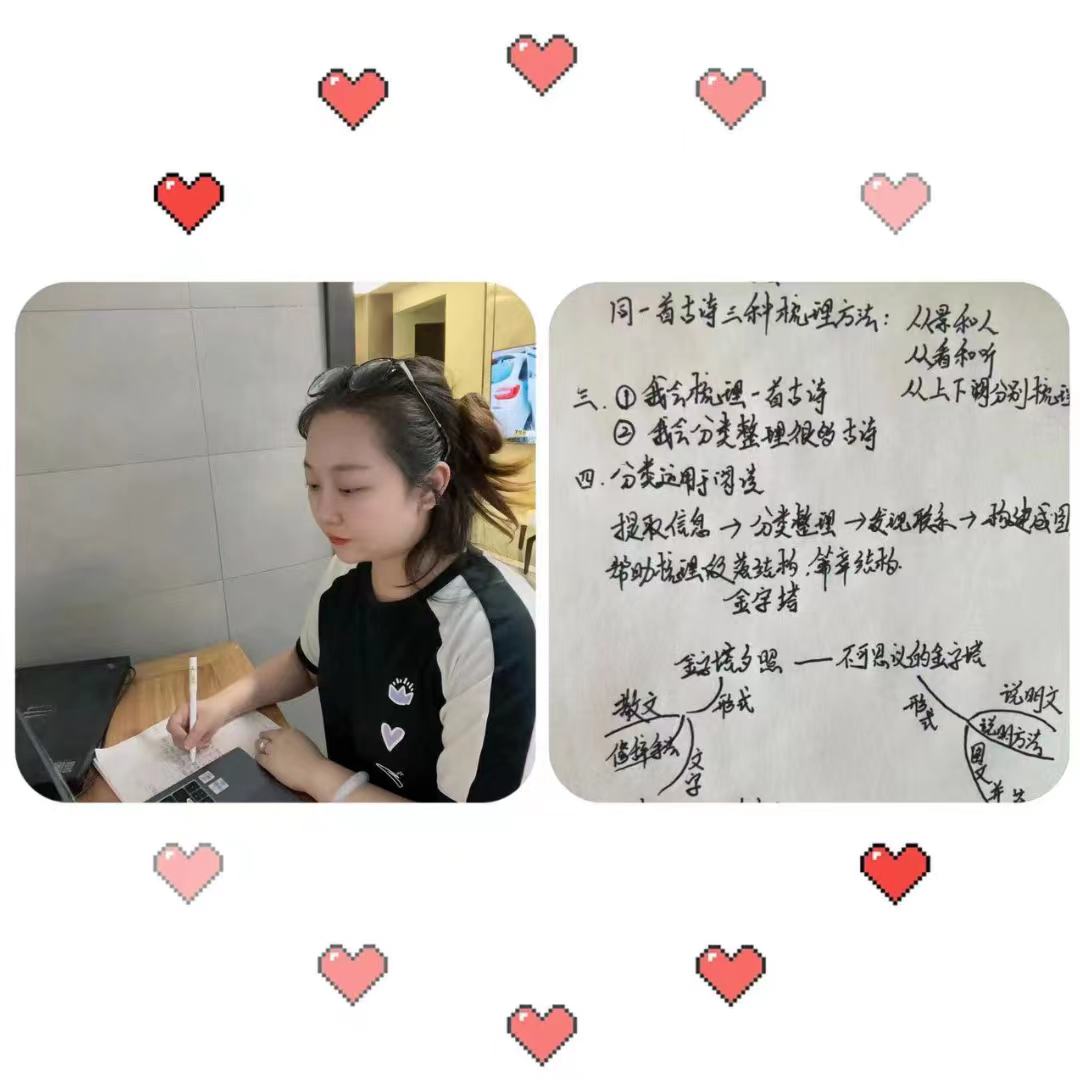 同一首古诗三种梳理方法：从景和人
从看和听
从上下阕分别梳理
三.①我会梳理一首古诗
②我会分类整理很多古诗
四.分类运用于阅读
提取信息→分类整理→发现联系→构建成图
帮助梳理段落结构、篇章结构.
金字塔
金字塔夕照——不可思议的金字塔
散文 形式 形式 说明文
修辞手法 文字 说明方法
图文